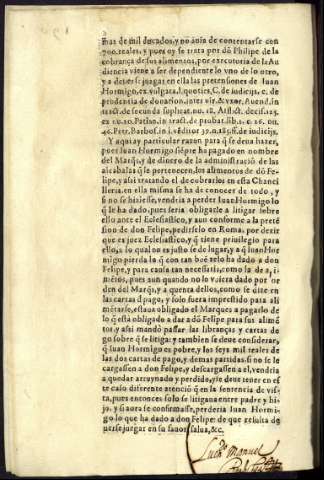 mas de mil ducados, y no auia de contentarse con
700. reales, y pues oy se trata por dõ Philipe de la
cobrança de sus alimentos, por executoria de la Au
diencia viene a ser dependiente lo vno de lo otro,
y a deuerse juzgar en ella las pretensiones de Iuan
Hormigo, ex vulgata, l. quoties, C. de iudicijs. C. de
prudentia de donation. inter vir. & vxor. Auend. in
tract. de secunda suplicat. nu. 12. Afflict. decis.
ex nu. 10. in tract. de probat. lib. 1. c. 16. nu.
46. Petr. Barbos. in l. ff. de iudicijs.
Y aqui ay particular razon para q̃ se deua hazer,
pues Iuan Hormigo siẽpre ha pagado en nombre
del Marq̃s, y de dinero de la administració de las
alcabalas q̃ le pertenecen, los alimentos de dõ Fe-
lipe, y assi tratando el de cobrarlos en esta Chanci
lleria, en ella misma se ha de conocer de todo, y
si no se hiziesse, vendria a perder Iuan Hormigo lo
q̃ le ha dado, pues seria obligarle a litigar sobre
ello ante el Ecclesiastico, y aun conforme a la preté
sion de don Felipe, pedirselo en Roma, por dezir
que es juez Ecclesiastico, y q̃ tiene priuilegio para
ello, a lo qual no es justo se de lugar, y a q̃ Iuan Hor
migo pierda lo q̃ con tan boẽ zelo ha dado a don
Felipe, y para causa tan necessaria, como la de ali
mẽtos, pues aun quando no lo vuiera dado por or
den del Marq̃s, y a quenta dellos, como se dize en
las cartas d̃ pago, y solo fuera imprestido para ali
mẽtarse, estaua obligado el Marques a pagarlo de
lo q̃ està obligado a dar a dõ Felipe para sus alimẽ
tos, y assi mandò passar las libranças y cartas de
go sobre q̃ se litiga: y tambien se deue considerar,
q̃ Iuan Hormigo es pobre, y los seys mil reales de
las dos cartas de pago, y demas partidas, si no se le
cargassen a don Felipe, y descargassen a el, vendria
a quedar arruynado y perdido, y se deue tener en es
te caso diferente atenció q̃ en la sentencia de vis-
ta, pues entonces solo se litigaua entre padre y hi-
jo, y si aora se confirmasse, perderia Iuan Hormi-
go lo que ha dado a don Felipe: de que resulta de
uerse juzgar en su fauor, salua, &c.
Manuel